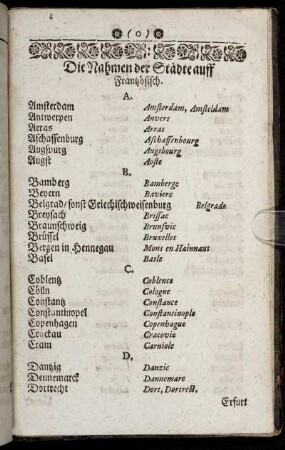 ( o )
Die Nahmen der Städte auff
Frantzösisch.
A.
Amsterdam Amsterdam, Amsteldam
Antwerpen Anvers
Arras Arras
Aschaffenburg Aschaffenbourg
Augspurg Augsbourg
Augst Aoste
B.
Bamberg Bamberge
Beyern Baviere
Belgrad/ sonst Griechischweissenburg Belgrade
Breysach Brissac
Braunschweig Brunsvic
Brüssel Bruxelles
Bergen in Hennegau Mons en Hainaut
Basel Basle
C.
Coblentz Coblence
Cölln Cologne
Constantz Constance
Constantinopel Constantinople
Copenhagen Copenhague
Crackau Cracovie
Crain Carniole
D.
Dantzig Danzic
Dennemarck Dannemarc
Dortrecht Dort, Dortrect.
Erfurt